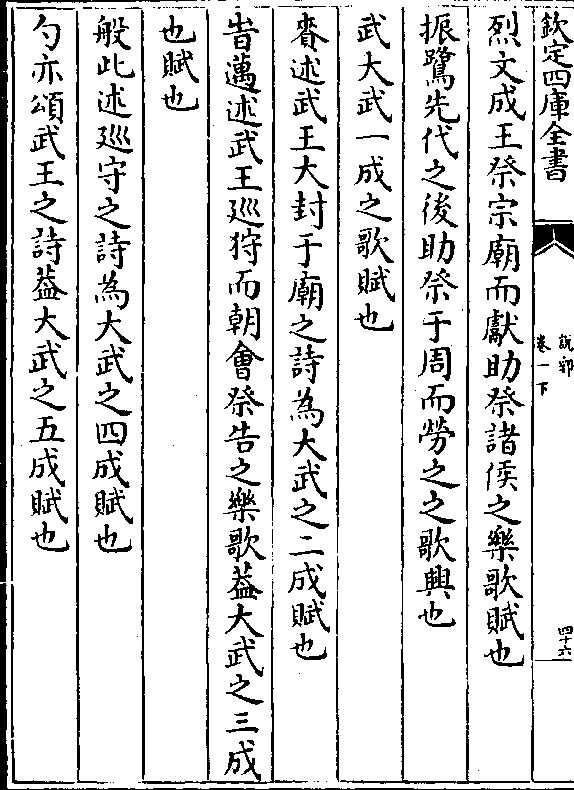 欽定四庫全書
說郛
卷一下
四十六
烈文成王祭宗廟而獻助祭諸侯之樂歌賦也
振鷺先代之後助祭于周而勞之之歌興也
武大武一成之歌賦也
賚述武王大封于廟之詩為大武之二成賦也
旹邁述武王巡狩而朝會祭告之樂歌葢大武之三成
也賦也
般此述廵守之詩為大武之四成賦也
勺亦頌武王之詩葢大武之五成賦也